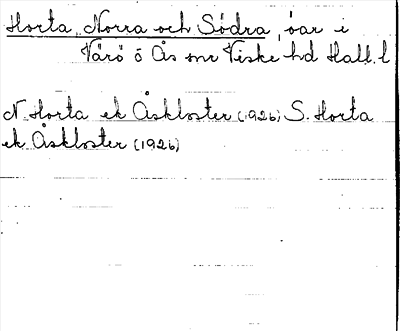 Horta, Norra och Södra, öar i
Värö o Ås snr Viske hd Hall. l
N. Horta ek Åskloster (1926) S. Horta
ek Åskloster (1926)